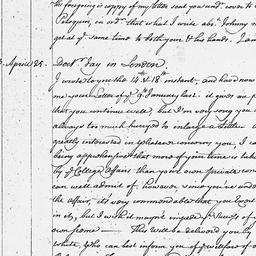 the foregoing is copy of my letter
Pelegrin, in ord.r that what I write ab.t Johnny
get at y.e same time to both your & his hands. I am
April 28. Doct.r Gay in London.
I wrote to you the 14 & 18 instant, and have now
me your Letter of y.e 9 January last. it gives me p
that you continue well, but I'm very sorry you
always too much hurryed to enlarge a Letter
greatly interested in whatever concerns you, I ca
being apprehensive that more of your time is taken
by y.e College Affair than your own private con
can well admit of. however, since you've under
the Affair, it's very commendable that you Exert
in it, but I wish it mayn't impede y.e
own fame — This will be delivered you by
White, who can best inform you of y.e welfare of